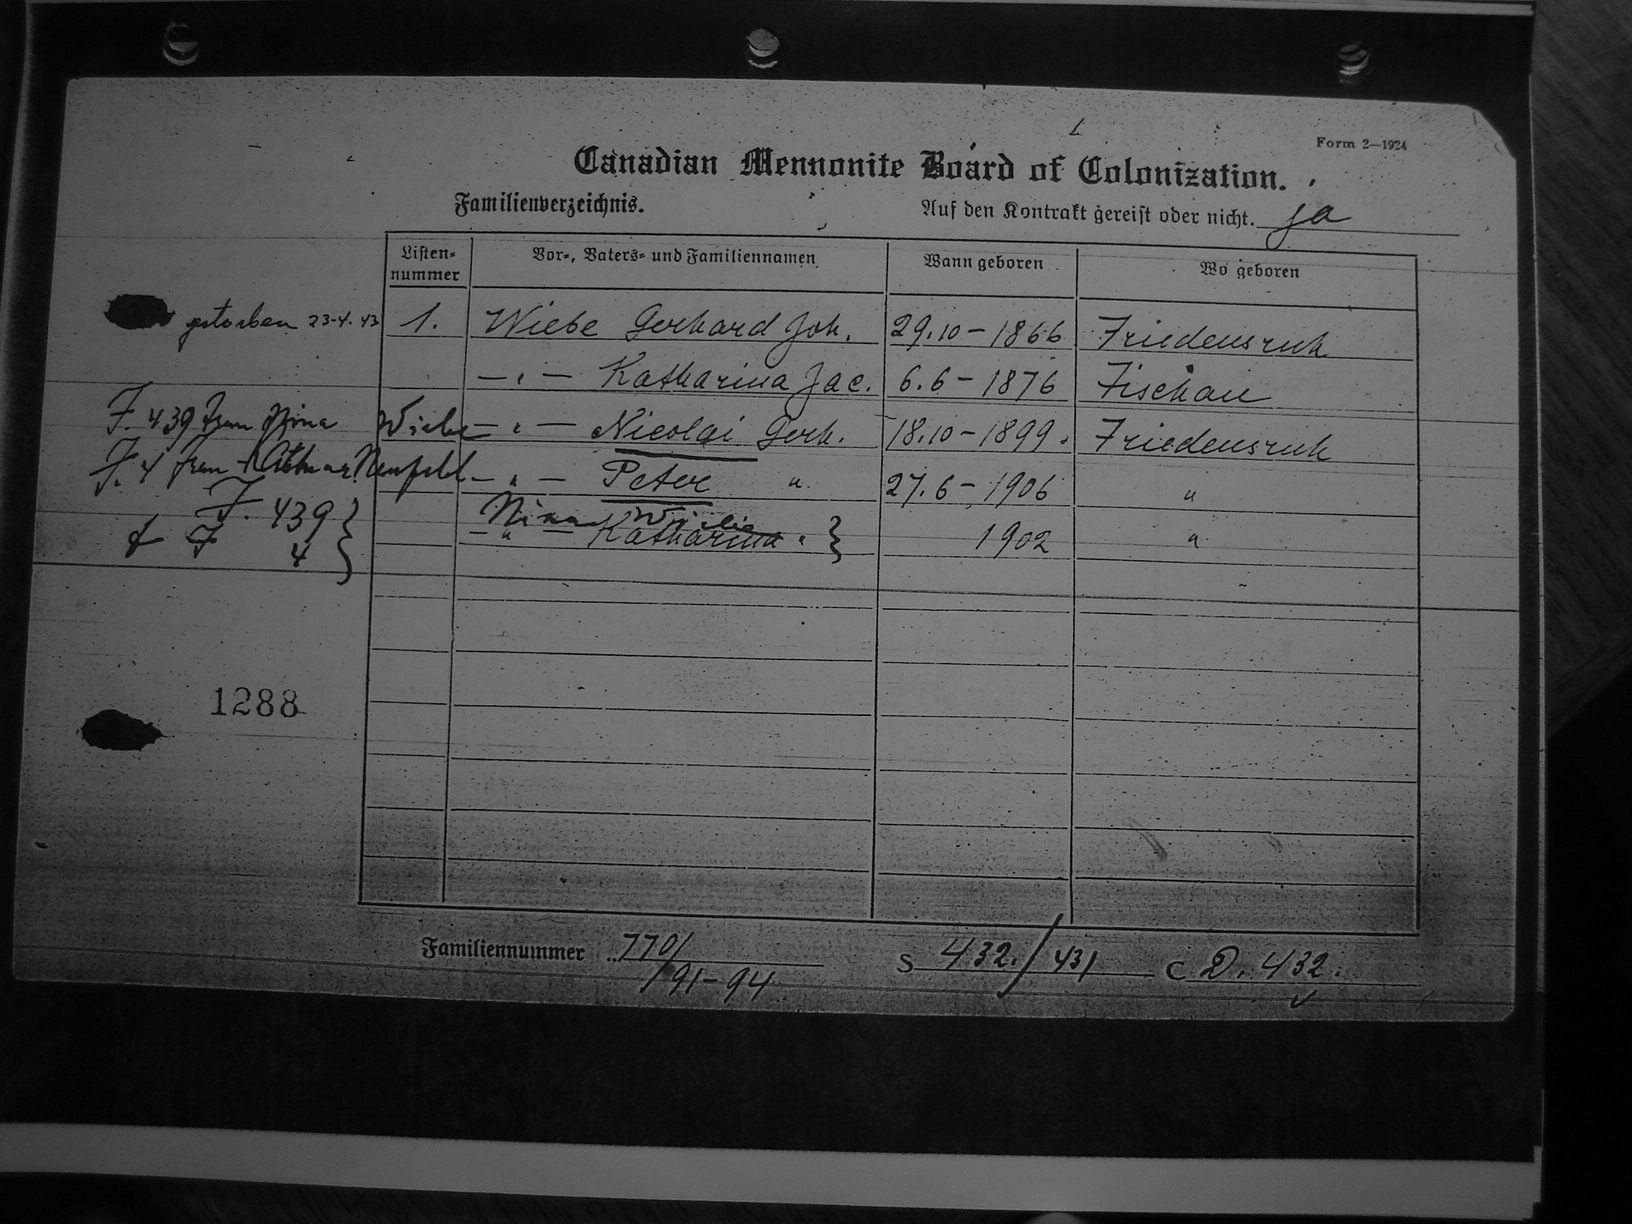 Form 2—1924
Canadian Mennonite Board of Colonization.
Familienverzeichnis. Auf den Kontrakt gereist oder nicht. ja
Listen-nummer Vor-, Vaters- und Familiennamen Wann geboren Wo geboren
gestorben 23-4.43 1. Wiebe Gerhard Joh. 29.10-1866 Friedensruh
—"— Katharina Jac. 6.6-1876 Fischau
F. 439 Frau Nina Wiebe —"— Nicolai Gerh. 18.10-1899. Friedensruh
F. 4 frau Neufeld —"— Peter " 27.6-1906 "
F. 439 } Nina
F 4 —"— Katharina " } 1902 "
1288
Familiennummer 770/ S 432./431 C D. 432.
/91-94